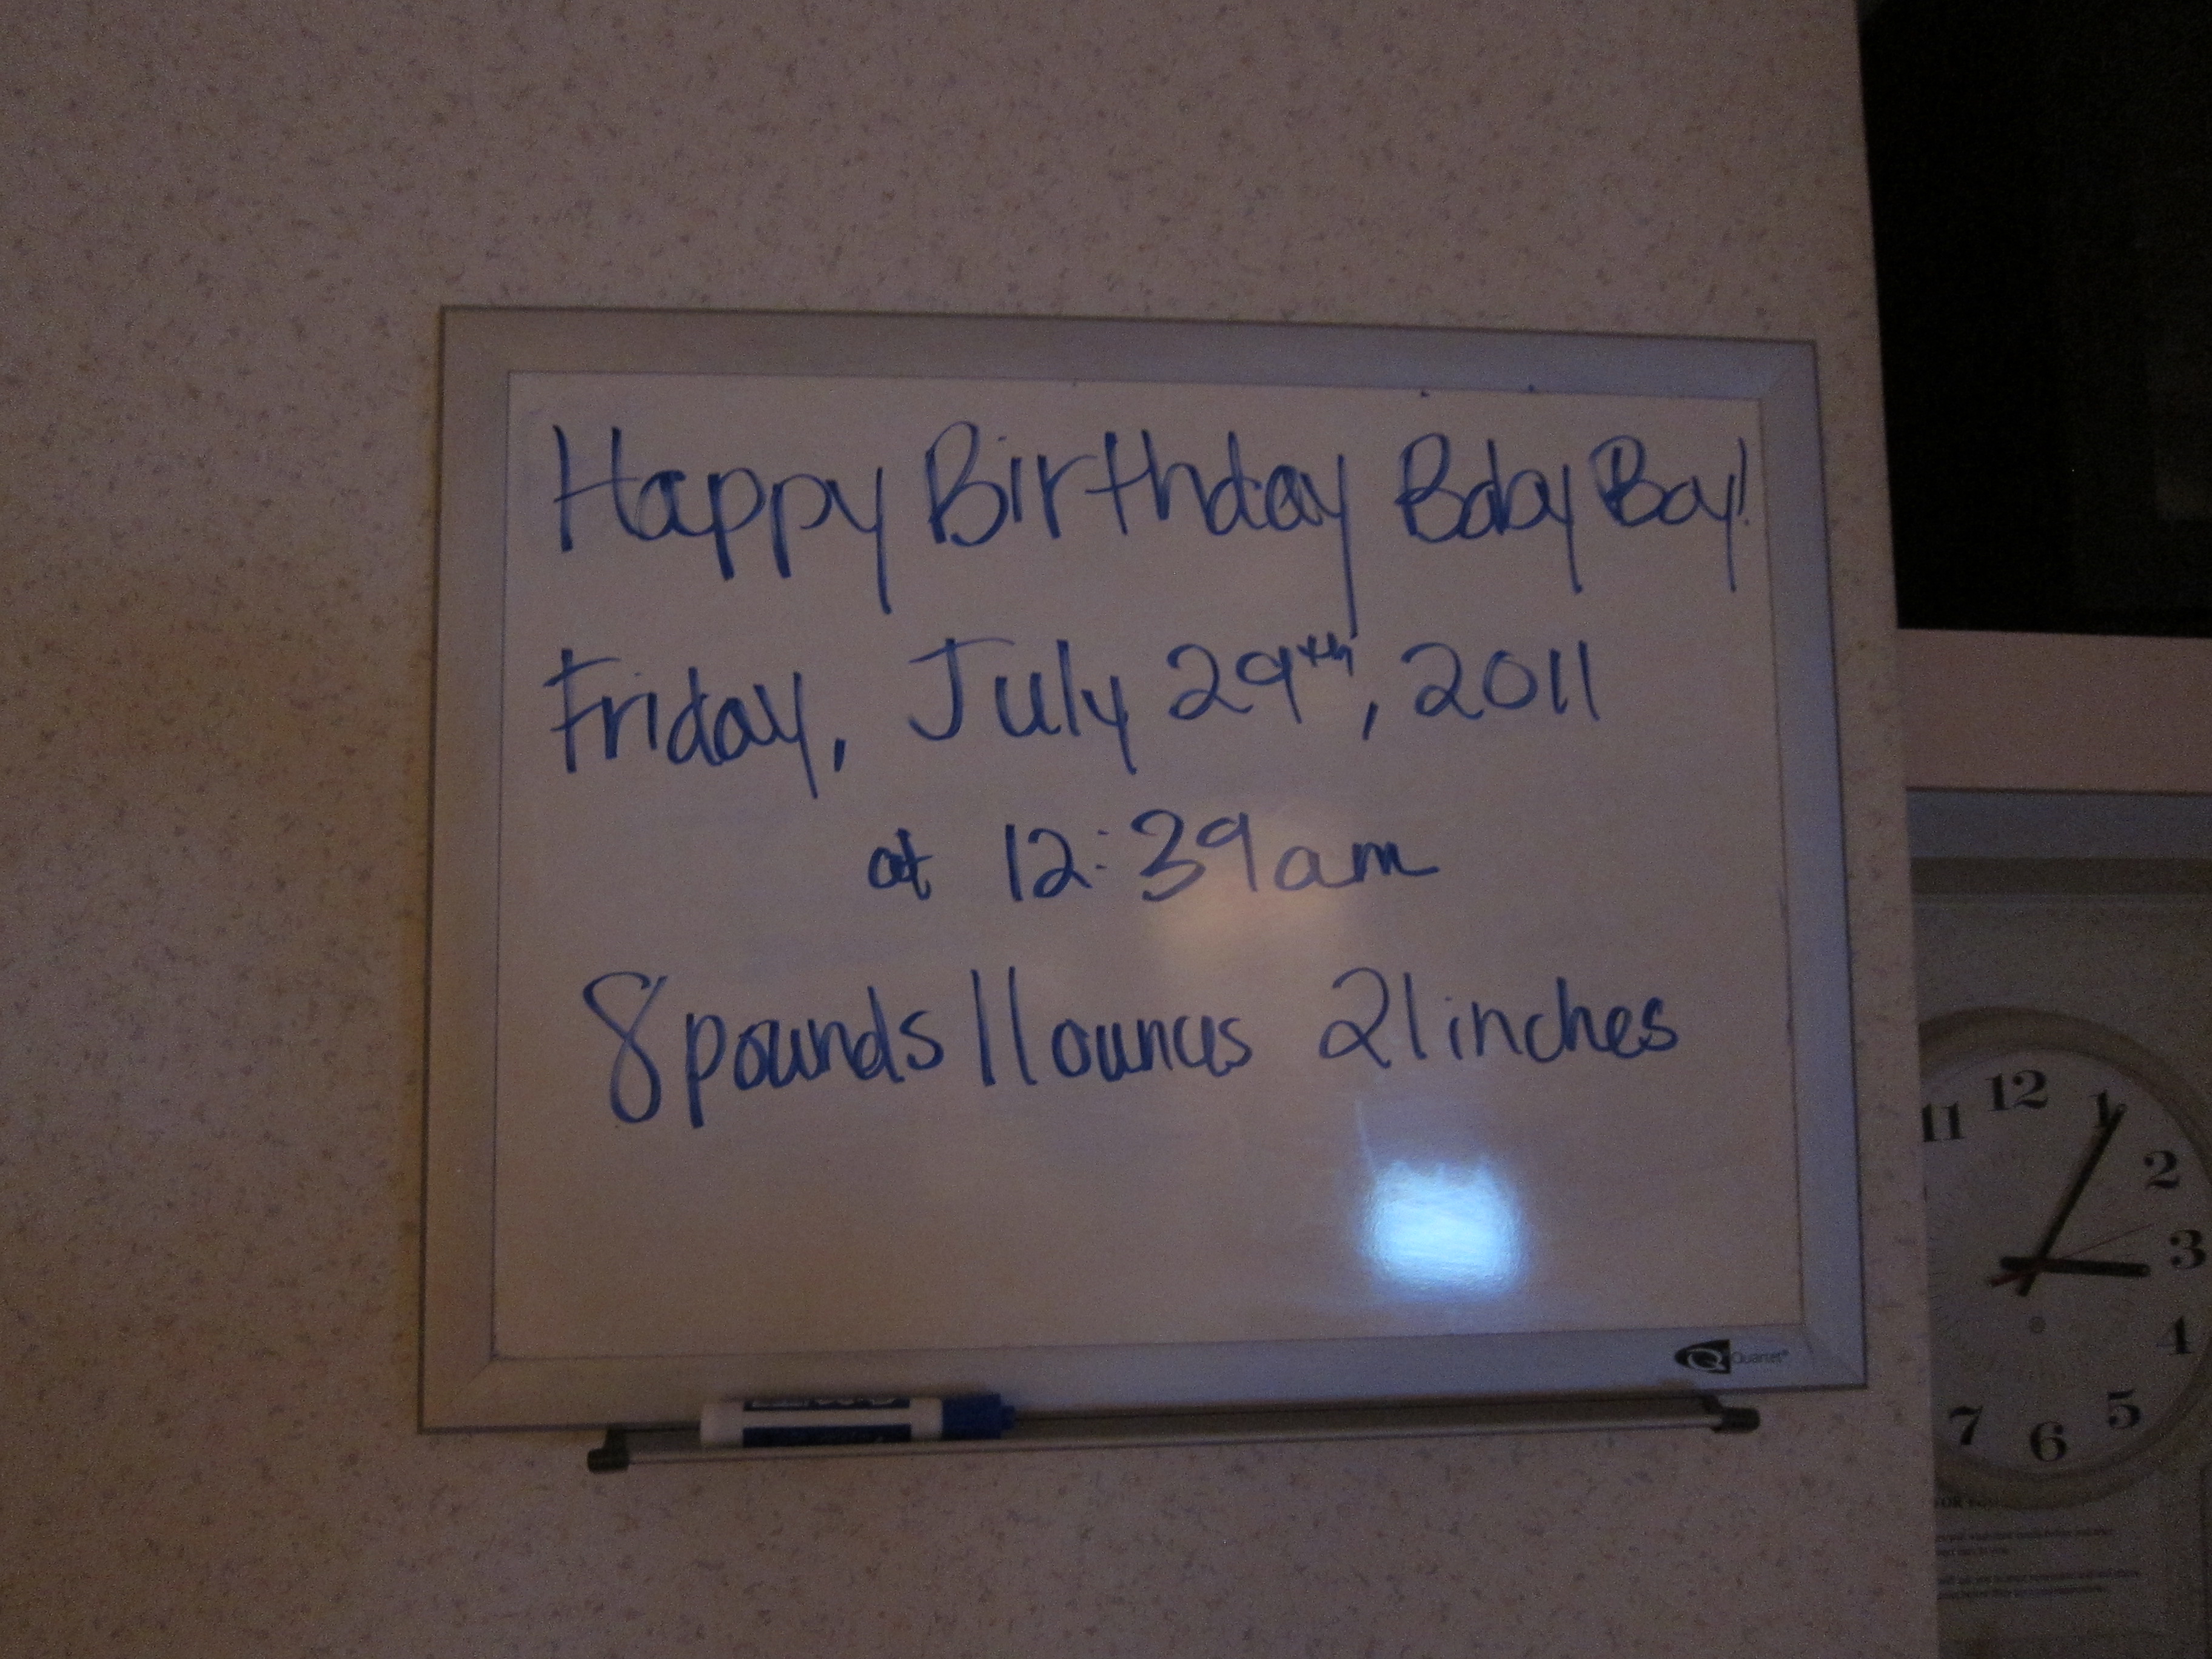 Happy Birthday Baby Boy!
Friday, July 29th, 2011
at 12:39am
8 pounds 11 ounces 21 inches
Quartet®
11 12 1
2
3
4
5
6
7